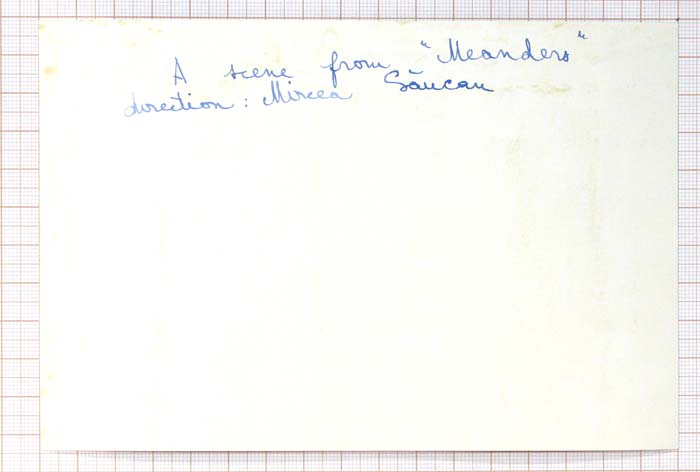 A scene from "Meanders"
direction: Mircea Săucan